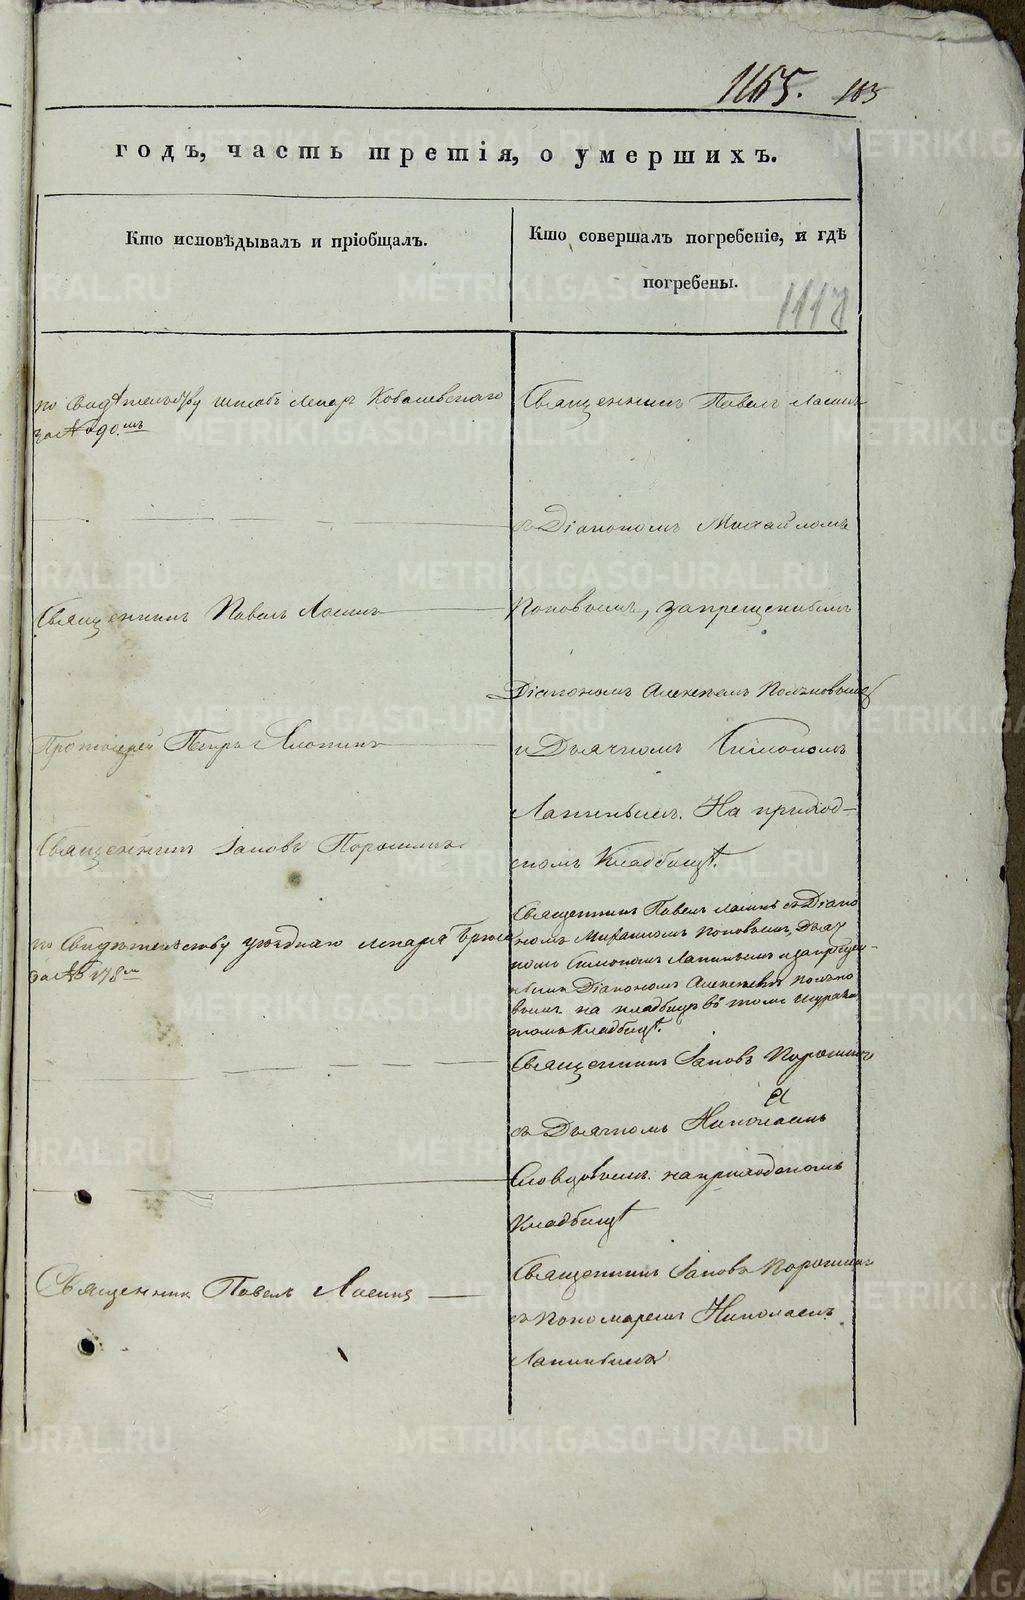 1165. 163
годъ, часть третія, о умершихъ.
Кто исповѣдывалъ и пріобщалъ.
Кто совершалъ погребеніе, и гдѣ
погребены.
по Свидѣтельству штабъ Лекаря Ковалевскаго
за № 290.мъ
Священникъ Павелъ Ласинъ
Протоіерей Петръ
Священникъ Іаковъ Порошинъ
по Свидѣтельству уѣзднаго лекаря
за № 178м
Священникъ Павелъ Ласинъ
Священникъ Павелъ Ласинъ
съ Діакономъ Михаиломъ
Поповымъ, запрещеннымъ
Діакономъ Алексѣемъ
и Дьячкомъ Симономъ
Лапинымъ. На приход-
скомъ Кладбищѣ.
Священникъ Павелъ Ласинъ съ Діако
номъ Михаиломъ Поповымъ, Дьяч
комъ Симономъ Лапинымъ и запрещен-
нымъ Діакономъ Алексѣемъ
вымъ на кладбищѣ въ томъ
томъ Кладбищѣ.
Священникъ Іаковъ Порошинъ
съ Дьячкомъ Николаемъ
Словцовымъ. на приходскомъ
Кладбищѣ
Священникъ Іаковъ Порошинъ
съ пономаремъ Николаемъ
Лапинымъ
METRIKI.GASO-URAL.RU